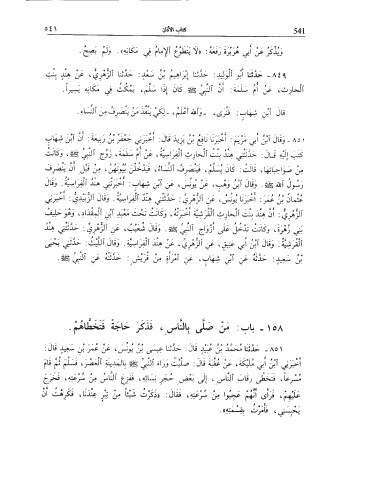 ٥٤٦ كتاب الأذان 541
ويُذكَرُ عَن أبي هُرَيْرَةَ رَفَعَهُ: «لا يَتطَوَّعُ الإمامُ في مَكانِهِ». ولَم يَصِحَّ.
٨٤٩ - حَدَّثَنا أبُو الوَلِيدِ: حَدَّثَنا إبْراهِيمُ بنُ سَعْدٍ: حَدَّثَنا الزُّهْرِيُّ، عَنْ هِنْدٍ بِنْتِ
الحارِثِ، عَنْ أُمِّ سَلَمَةَ: أنَّ النَّبِيَّ ﷺ كانَ إذَا سَلَّمَ، يَمْكُثُ في مَكانِهِ يَسِيراً.
قالَ ابْنُ شِهابٍ: فَنُرَى، - واللهُ أعْلَمُ - لِكَيْ يَنْفُذَ مَنْ يَنْصَرِفُ مِنَ النِّساءِ.
٨٥٠ - وقالَ ابْنُ أبي مَرْيَمَ: أخْبَرَنا نافِعُ بْنُ يَزِيدَ قال: أخْبَرَني جَعْفَرُ بْنُ رَبِيعَةَ: أنَّ ابْنَ شِهابٍ
كَتَبَ إلَيْهِ قالَ: حَدَّثَتْني هِنْدُ بِنْتُ الحارِثِ الفِراسِيَّةُ، عَنْ أُمِّ سَلَمَةَ، زَوْجِ النَّبِيِّ ﷺ، وكانَتْ
مِنْ صَواحِباتِها، قالَتْ: كانَ يُسَلِّمُ، فَيَنْصَرِفُ النِّساءُ، فَيَدْخُلْنَ بُيُوتَهُنَّ، مِنْ قَبْلِ أنْ يَنْصَرِفَ
رَسُولُ اللهِ ﷺ. وقالَ ابْنُ وهْبٍ، عَنْ يُونُسَ، عَنِ ابْنِ شِهابٍ: أخْبَرَتْني هِنْدُ الفِراسِيَّةُ. وقالَ
عُثْمانُ بْنُ عُمَرَ: أخْبَرَنا يُونُسُ، عَنِ الزُّهْرِيِّ: حَدَّثَتْني هِنْدُ الفِراسِيَّةُ. وقالَ الزُّبَيْدِيُّ: أخْبَرَني
الزُّهْرِيُّ: أنَّ هِنْدَ بِنْتَ الحارِثِ القُرَشِيَّةَ أخْبَرَتْهُ، وكانَتْ تَحْتَ مَعْبَدِ ابْنِ المِقْدادِ، وهُوَ حَلِيفُ
بَني زُهْرَةَ، وكانَتْ تَدْخُلُ عَلى أزْواجِ النَّبِيِّ ﷺ. وقالَ شُعَيْبٌ، عَنِ الزُّهْرِيِّ: حَدَّثَتْني هِنْدُ
القُرَشِيَّةُ. وقالَ ابْنُ أبي عَتِيقٍ، عَنِ الزُّهْرِيِّ، عَنْ هِنْدَ الفِراسِيَّةِ. وقالَ اللَّيْثُ: حَدَّثَني يَحْيَى
بْنُ سَعِيدٍ: حَدَّثَهُ عَنِ ابْنِ شِهابٍ، عَنِ امْرَأةٍ مِنْ قُرَيْشٍ: حَدَّثَتْهُ عَنِ النَّبِيِّ ﷺ.
١٥٨ - باب: مَنْ صَلَّى بِالنَّاسِ، فَذَكَرَ حَاجَةً فَتَخَطَّاهُمْ.
٨٥١ - حَدَّثَنا مُحمَّدُ بْنُ عُبَيْدٍ قالَ: حَدَّثَنا عِيسَى بْنُ يُونُسَ، عَنْ عُمَرَ بْنِ سَعِيدٍ قالَ:
أخْبَرَني ابْنُ أبي مُلَيْكَةَ، عَنْ عُقْبَةَ قالَ: صَلَّيْتُ وراءَ النَّبِيِّ ﷺ بِالمَدِينَةِ العَصْرَ، فَسَلَّمَ ثُمَّ قامَ
مُسْرِعاً، فَتَخَطَّى رِقابَ النَّاسِ، إلى بَعْضِ حُجَرِ نِسائِهِ، فَفَزِعَ النَّاسُ مِنْ سُرْعَتِهِ، فَخَرَجَ
عَلَيْهِمْ، فَرَأى أنَّهُمْ عَجِبُوا مِنْ سُرْعَتِهِ، فَقالَ: «ذَكَرْتُ شَيْئاً مِنْ تِبْرٍ عِنْدَنا، فَكَرِهْتُ أنْ
يَحْبِسَني، فَأمَرْتُ بِقِسْمَتِهِ».